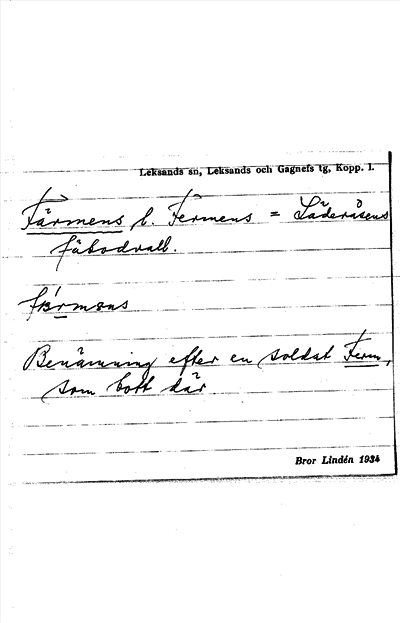 Leksands sn, Leksands och Gagnefs tg, Kopp. l.
Färmens l. Fermens = Läderåsens
fäbodvall.
färmens
Benämning efter en soldat Ferm,
som bott där
Bror Lindén 1934